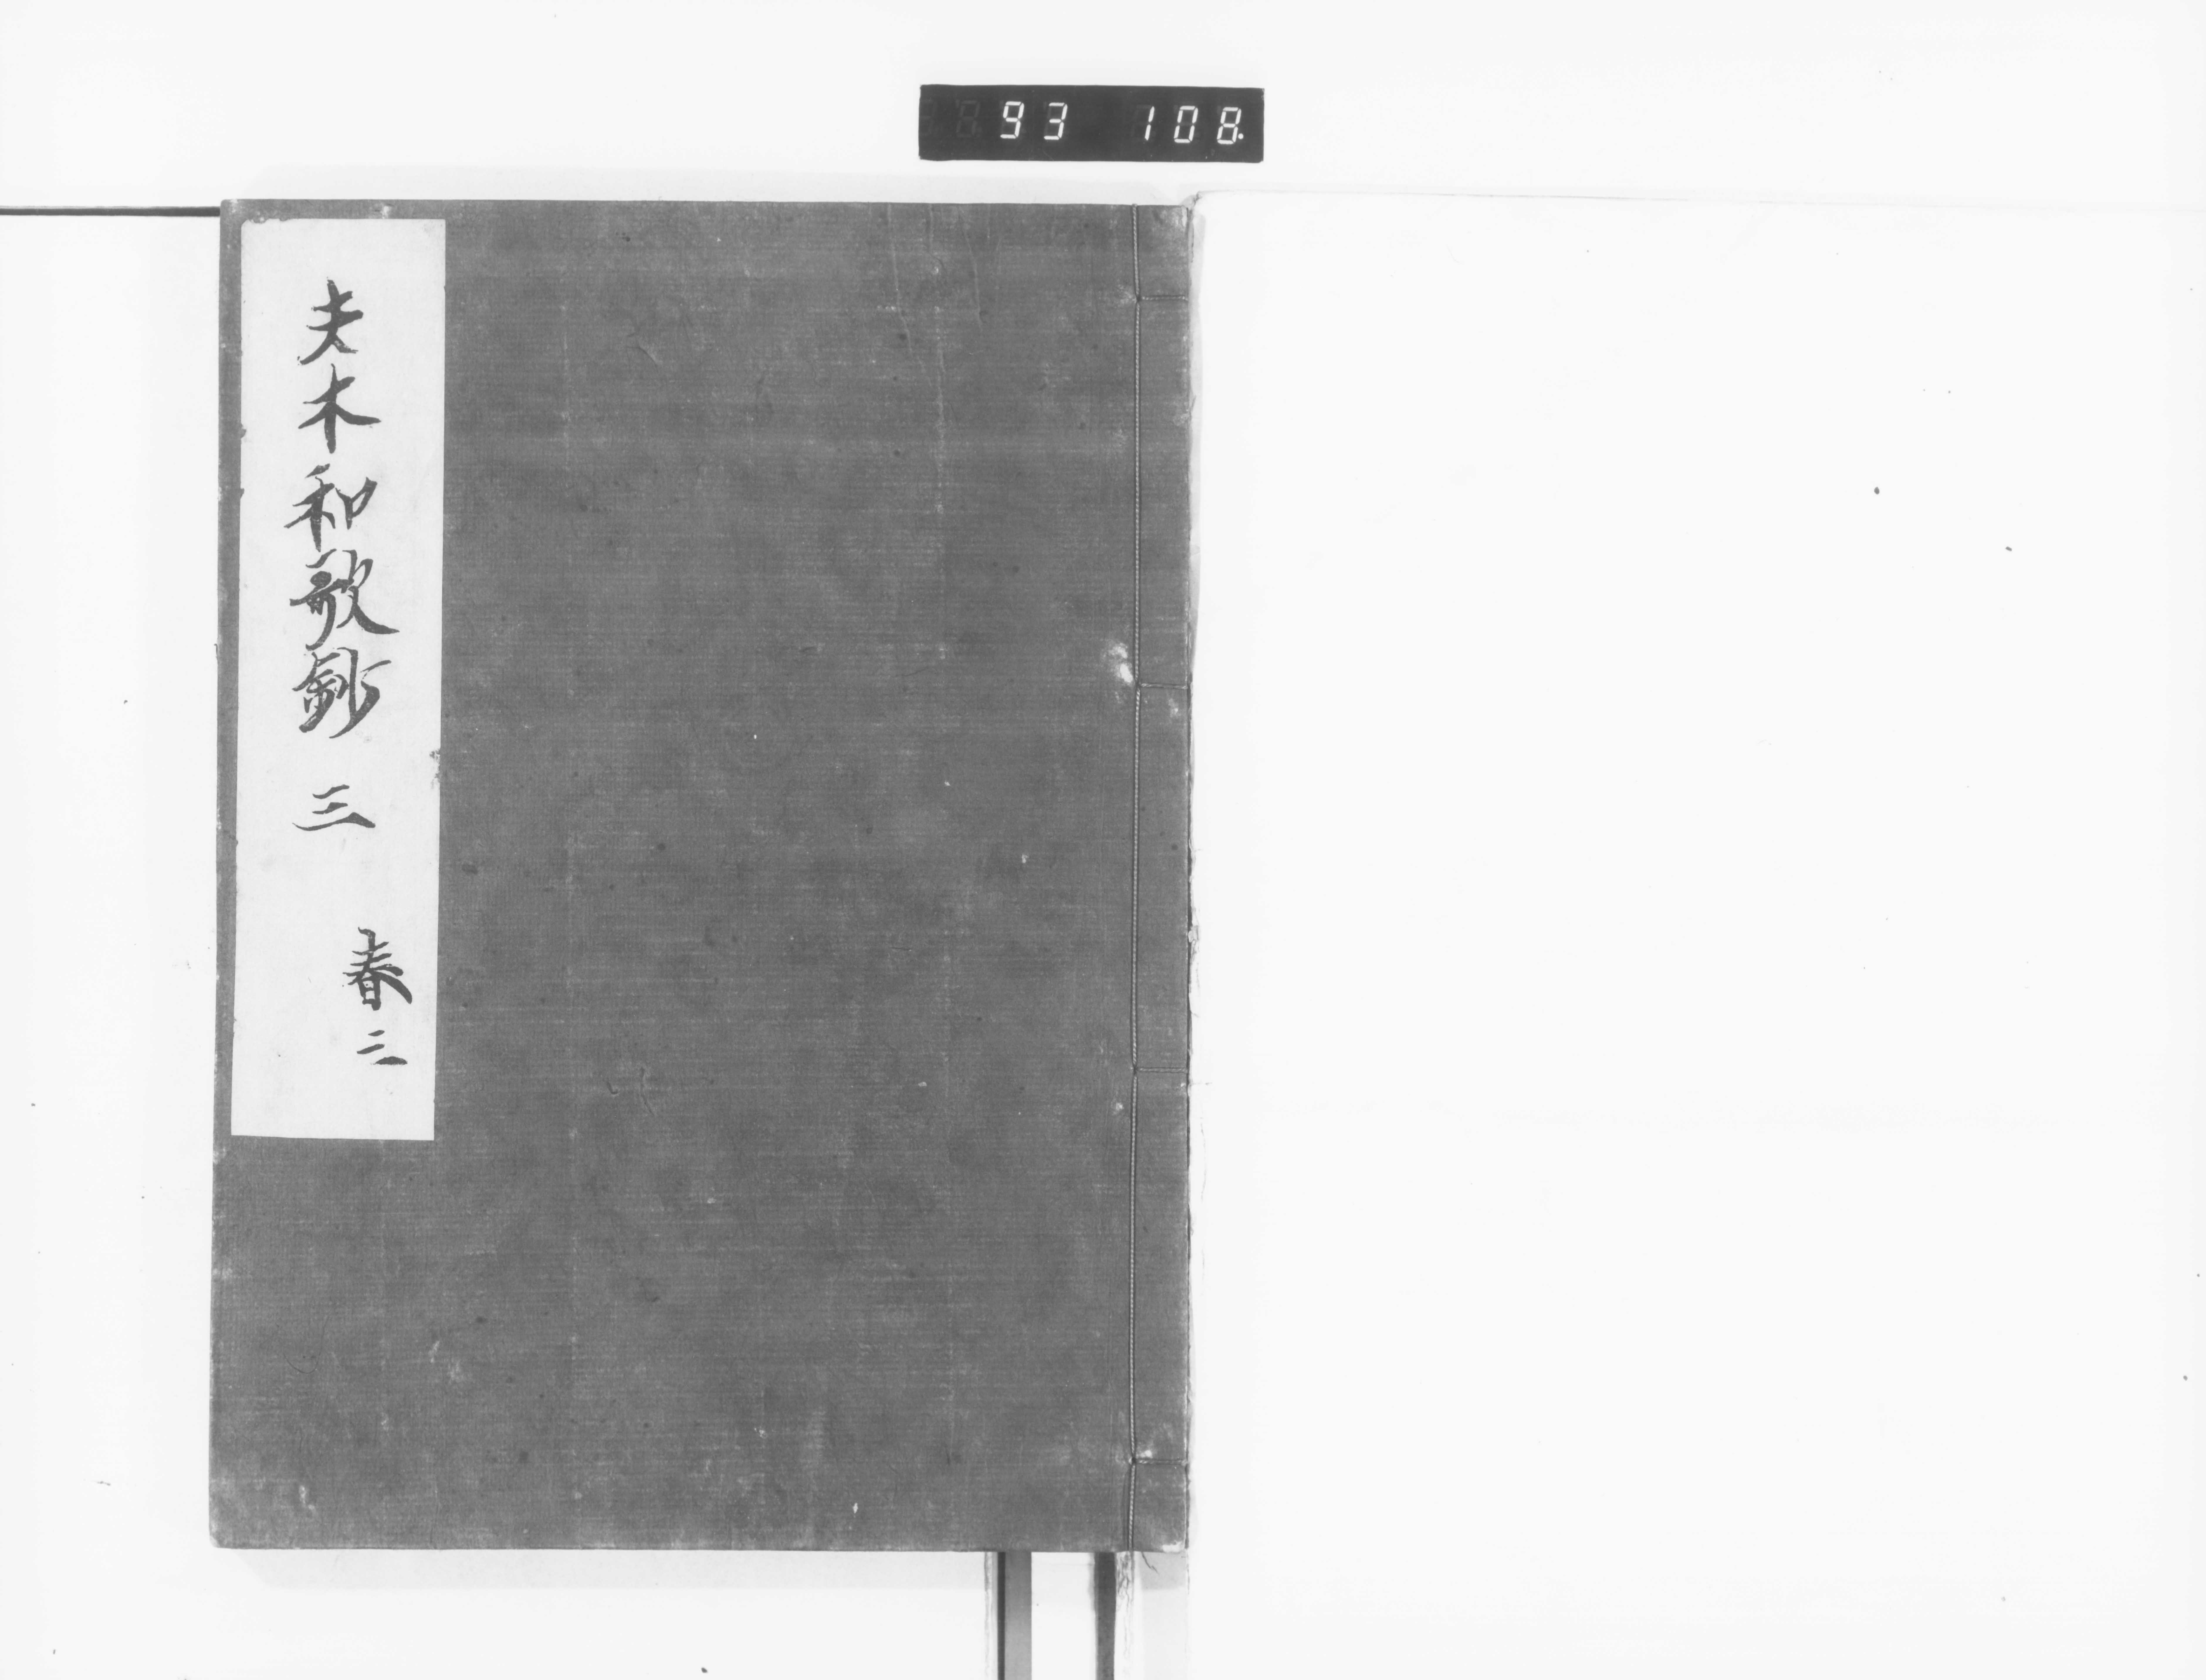 93 108
夫木和歌鈔 三
春三